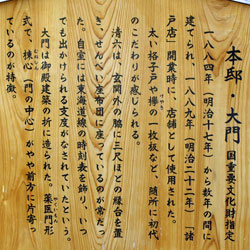 本邸・大門 国重要文化財指定
一八八四年(明治十七年)から数年の間に
建てられ、一八八九年(明治二十二年)「諸
戸店」開業時に、店舗として使用された。
太い格子戸や欅の一枚板など、随所に初代
のこだわりが感じられる。
清六は、玄関外の脇に三尺ほどの縁台を置
き、せんべい座布団に座っているのが常だっ
た。自室には東海道線の時刻表を飾り、いつ
でも出かけられる支度がなされていたという。
大門は御殿建築の折に造られた。薬医門形
式で、棟心(門の中心)がやや前方に片寄っ
ているのが特徴。